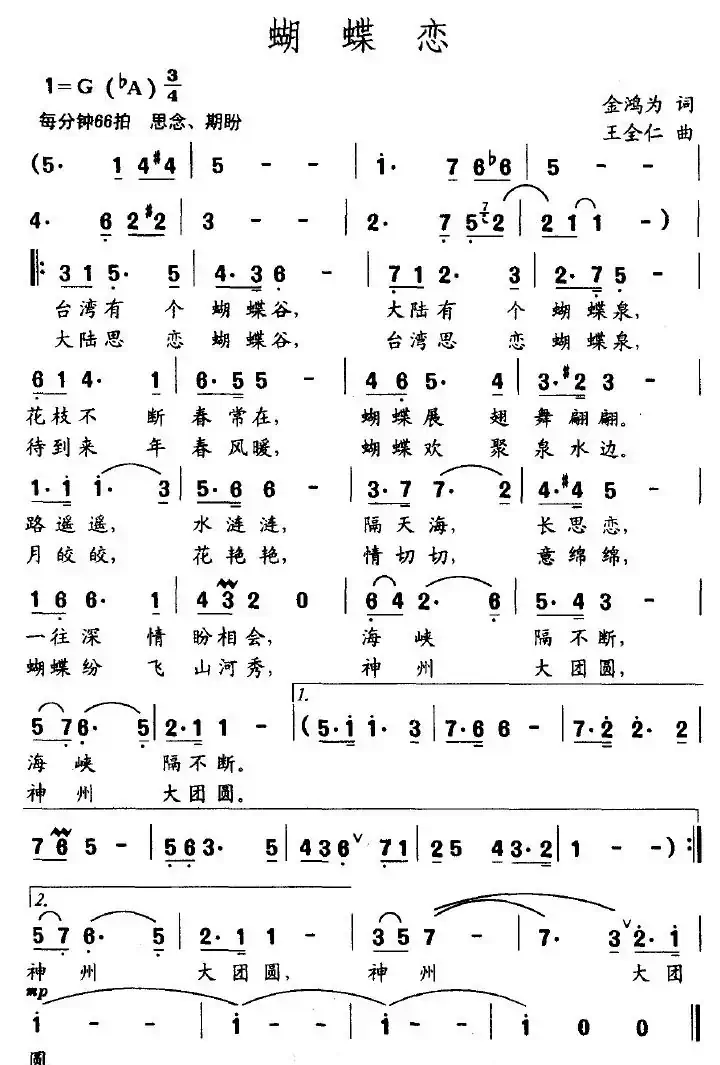 蝴 蝶 恋
1=G (♭A) 3/4
金鸿为 词
每分钟66拍 思念、期盼
王全仁 曲
(5· 1 4 #4 | 5 - - | i· 7 6 ♭6 | 5 - - |
4· 6 2 #2 | 3 - - | 2· 7 5 7 2 | 2 1 1 - ) |
‖: 3 1 5· 5 | 4· 3 6· - | 7 1 2· 3 | 2· 7 5· - |
台湾有 个 蝴 蝶谷, 大陆有 个 蝴 蝶泉,
大陆思 恋 蝴 蝶谷, 台湾思 恋 蝴 蝶泉,
6 1 4· 1 | 6· 5 5 - | 4 6 5· 4 | 3· #2 3 - |
花枝不 断 春 常在, 蝴 蝶展 翅 舞 翩翩。
待到来 年 春 风暖, 蝴 蝶欢 聚 泉 水边。
1· i i· 3 | 5· 6 6 - | 3· 7 7· 2 | 4· #4 5 - |
路 遥遥, 水 涟涟, 隔 天海, 长思恋,
月 皎皎, 花 艳艳, 情 切切, 意绵绵,
1 6 6· 1 | 4 3 2 0 | 6 4 2· 6 | 5· 4 3 - |
一往深 情 盼相会, 海 峡 隔 不断,
蝴蝶纷 飞 山河秀, 神 州 大团圆,
1.
5 7 6· 5 | 2· 1 1 - | (5· i i· 3 | 7· 6 6 - | 7· 2 2· 2 |
海 峡 隔不断。
神 州 大团圆。
7 6 5 - | 5 6 3· 5 | 4 3 6 ∨ 7 1 | 2 5 4 3· 2 | 1 - - ) :‖
2.
5 7 6· 5 | 2· 1 1 - | 3 5 7 - | 7· 3 ∨ 2· i |
神 州 大团圆, 神 州 大团
mp
i - - | i - - | i - - | i 0 0 ‖
圆